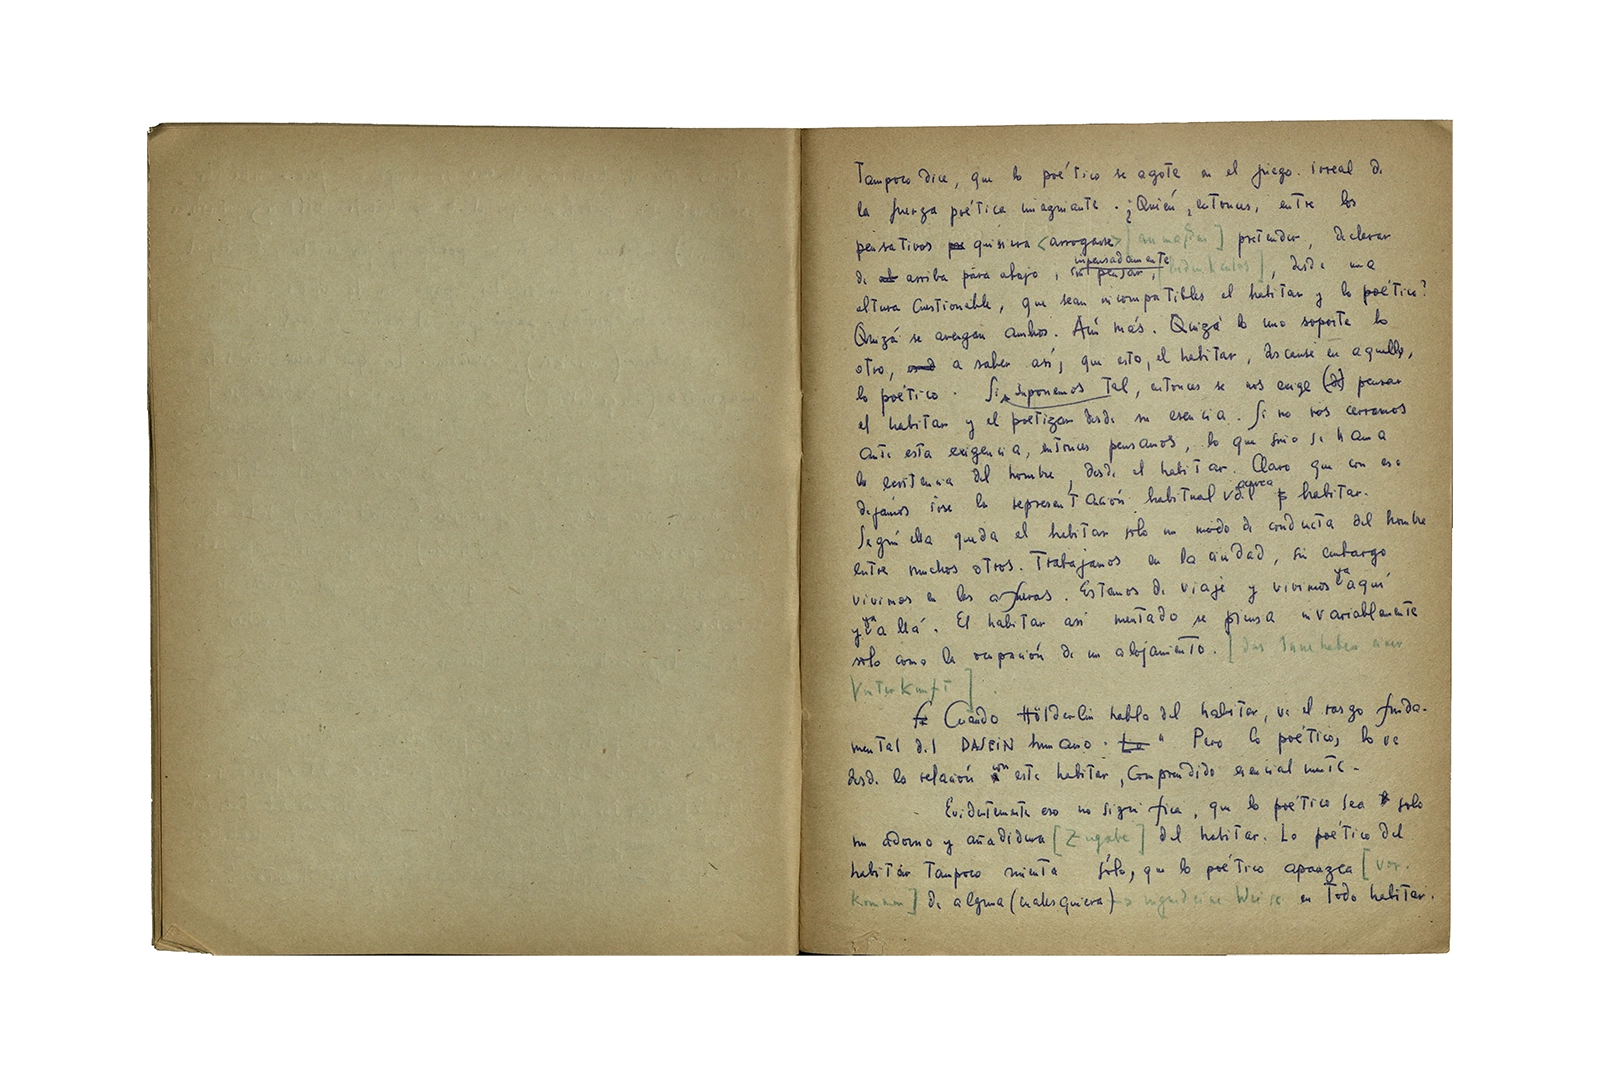 Tampoco dice, que lo poético se agote en el juego irreal de
la fuerza poética imaginante. ¿Quién, entonces, entre los
pensativos quisiera <arrogarse> [anmaßen] pretender, declarar
de arriba para abajo, impensadamente sin pensar, desde una
altura cuestionable, que sean incompatibles el habitar y lo poético?
Quizá se avengan ambos. Aún más. Quizá lo uno soporte lo
otro, a saber así, que esto, el habitar, descanse en aquello,
lo poético. Si suponemos tal, entonces se nos exige (de) pensar
el habitar y el poetizar desde su esencia. Si no nos cerramos
ante esta exigencia, entonces pensamos, lo que sino se llama
la existencia del hombre, desde el habitar. Claro que con eso
dejamos irse la representación habitual acerca del habitar.
Según ella queda el habitar solo un modo de conducta del hombre
entre muchos otros. Trabajamos en la ciudad, sin embargo
vivimos en las afueras. Estamos de viaje y vivimos ya aquí
y ya allá. El habitar así mentado se piensa invariablemente
solo como la ocupación de un alojamiento. [das Innehaben einer
Unterkunft]
Cuando Hölderlin habla del habitar, ve el rasgo funda-
mental del DASEIN humano. " Pero lo poético, lo ve
desde la relación con este habitar, comprendido esencialmente.
Evidentemente eso no significa, que lo poético sea solo
un adorno y añadidura [Zugabe] del habitar. Lo poético del
habitar tampoco mienta sólo, que lo poético aparezca [vor-
kommen] de alguna (cualesquiera) irgendeine Weise en todo habitar.